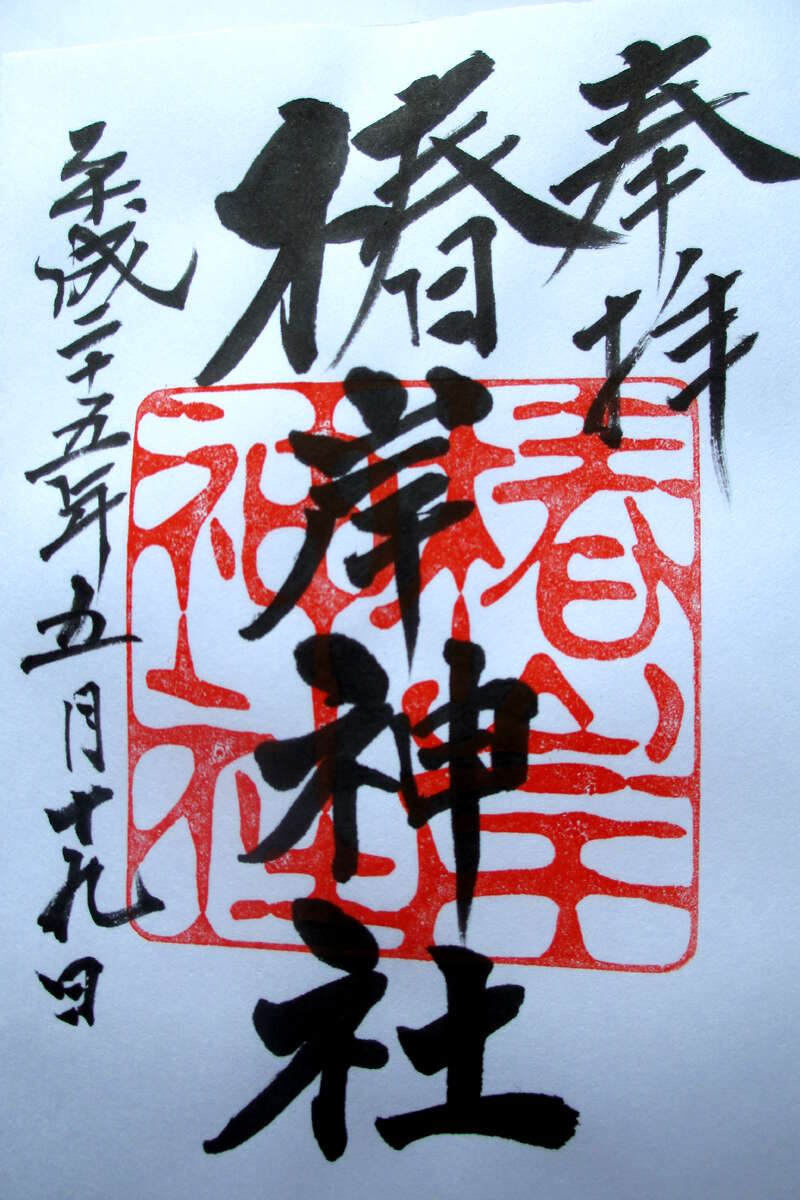 奉拝
椿岸神社
平成二十五年五月十九日